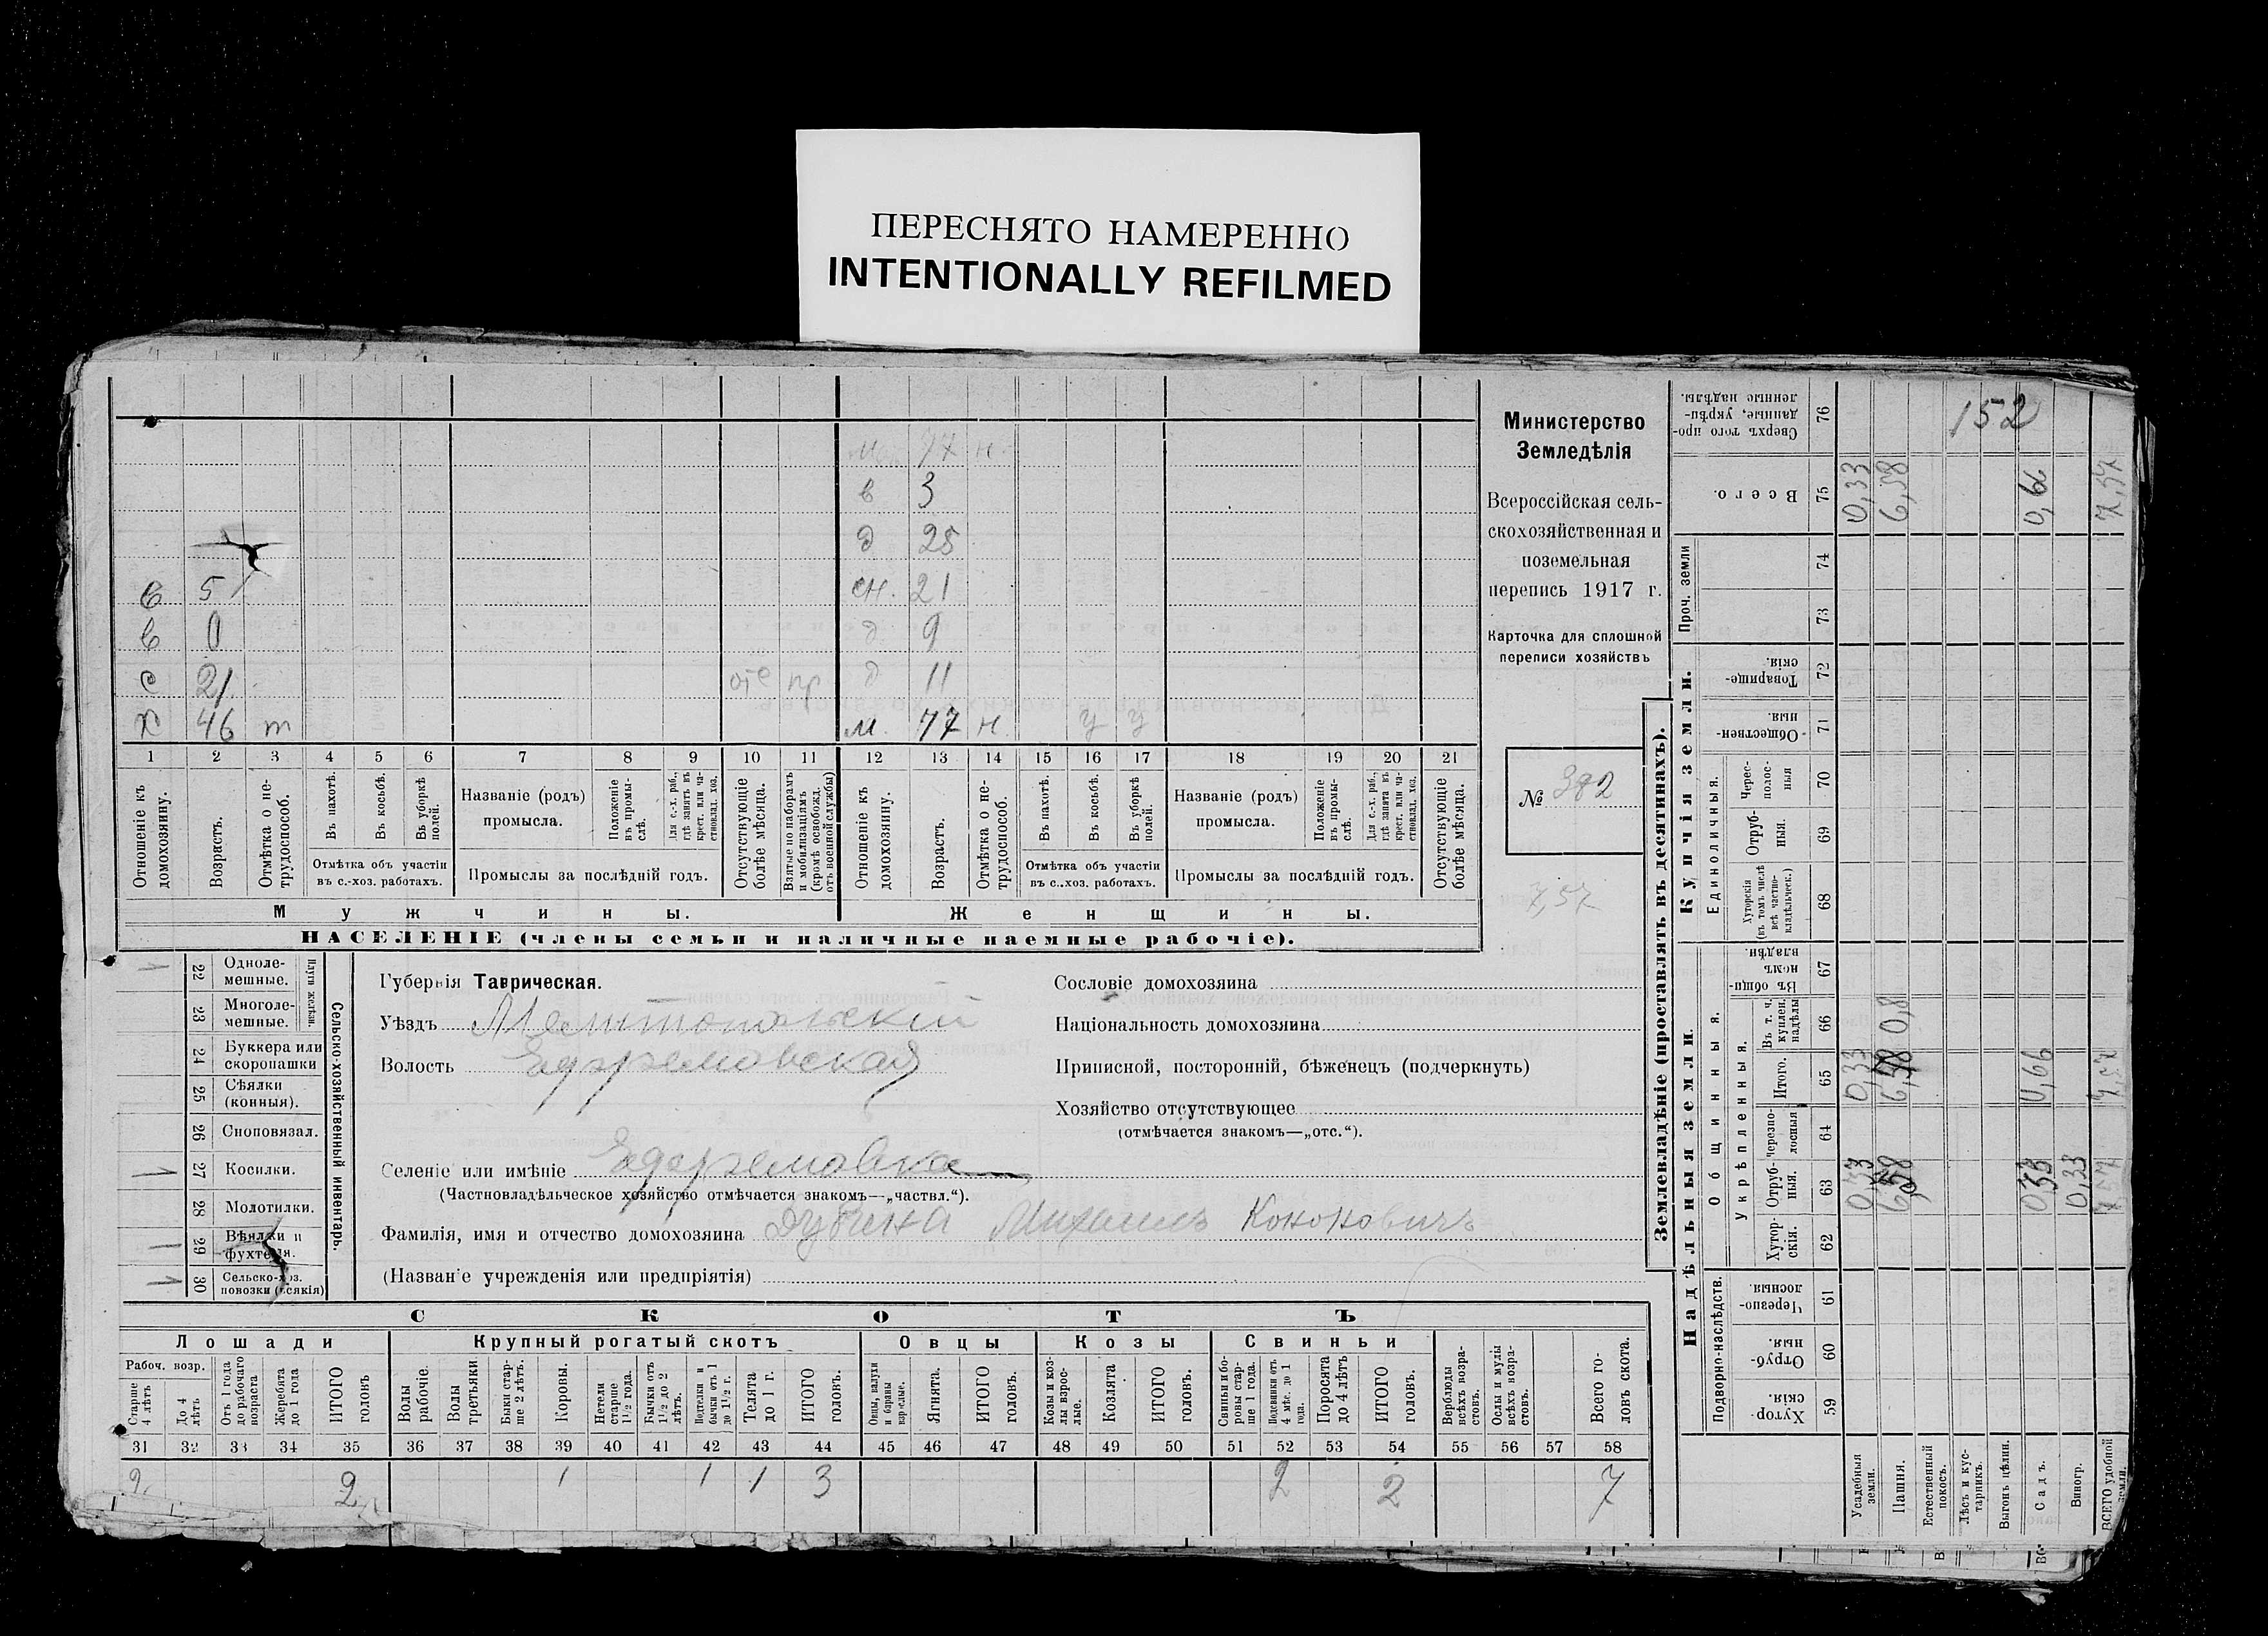 ПЕРЕСНЯТО НАМЕРЕННО
INTENTIONALLY REFILMED
н.
в 3
д 25
в 5 сн. 21
в 0 д 9
с 21 отс пр д 11
х 46 т м. 77 н. у у
1 2 3 4 5 6 7 8 9 10 11 12 13 14 15 16 17 18 19 20 21
Отношеніе къ домохозяину.
Возрастъ.
Отмѣтка о не-трудоспособ.
Въ пахотѣ.
Въ косьбѣ.
Въ уборкѣ полей.
Отмѣтка объ участіи
въ с.-хоз. работахъ.
Названіе (родъ)
промысла.
Положеніе въ промы-слѣ.
Для с.-х. раб., гдѣ занятъ въ крест. или ча-стновлад. хоз.
Промыслы за послѣдній годъ.
Отсутствующіе болѣе мѣсяца.
Взятые по наборамъ и мобилизаціямъ (кромѣ освобожд. отъ военной службы)
Отношеніе къ домохозяину.
Возрастъ.
Отмѣтка о не-трудоспособ.
Въ пахотѣ.
Въ косьбѣ.
Въ уборкѣ полей.
Отмѣтка объ участіи
въ с.-хоз. работахъ.
Названіе (родъ)
промысла.
Положеніе въ промы-слѣ.
Для с.-х. раб., гдѣ занята въ крест. или ча-стновлад. хоз.
Промыслы за послѣдній годъ.
Отсутствующіе болѣе мѣсяца.
Мужчины.
Женщины.
НАСЕЛЕНІЕ (члены семьи и наличные наемные рабочіе).
Министерство
Земледѣлія
Всероссійская сель-
скохозяйственная и
поземельная
перепись 1917 г.
Карточка для сплошной
переписи хозяйствъ
№ 382
7,57
22 Одноле-мешные.
23 Многоле-мешные.
Плуги желѣзн.
24 Буккера или скоропашки
25 Сѣялки (конныя).
26 Сноповязал.
27 Косилки.
28 Молотилки.
29 Вѣялки и фухтеля.
30 Сельско-хоз. повозки (всякія)
Сельско-хозяйственный инвентарь.
Губернія Таврическая.
Уѣздъ Мелитопольскій
Волость Ефремовская
Селеніе или имѣніе Ефремовка
(Частновладѣльческое хозяйство отмѣчается знакомъ—„частвл.“).
Фамилія, имя и отчество домохозяина Дубина Михаилъ Кононовичъ
(Названіе учрежденія или предпріятія)
Сословіе домохозяина
Національность домохозяина
Приписной, посторонній, бѣженецъ (подчеркнуть)
Хозяйство отсутствующее
(отмѣчается знакомъ—„отс.“).
СКОТЪ
Лошади
Крупный рогатый скотъ
Овцы
Козы
Свиньи
Рабоч. возр.
Старше 4 лѣтъ
До 4 лѣтъ
Отъ 1 года до рабочаго возраста
Жеребята до 1 года
ИТОГО головъ
Волы рабочіе.
Волы третьяки
Быки стар-ше 2 лѣтъ.
Коровы.
Нетели старше 1½ года.
Бычки отъ 1½ до 2 лѣтъ.
Подтелки и бычки отъ 1 до 1½ г.
Телята до 1 г.
ИТОГО головъ.
Овцы, валухи и бараны взрослые.
Ягнята.
ИТОГО головъ.
Козы и коз-лы взрос-лые.
Козлята
ИТОГО головъ.
Свиньи и бо-ровы стар-ше 1 года.
Подсвинки отъ 4 мѣс. до 1 года.
Поросята до 4 лѣтъ
ИТОГО головъ.
Верблюды всѣхъ возра-стовъ.
Ослы и мулы всѣхъ возра-стовъ.
Всего го-ловъ скота.
31 32 33 34 35 36 37 38 39 40 41 42 43 44 45 46 47 48 49 50 51 52 53 54 55 56 57 58
2 2 1 1 1 3 2 2 7
Землевладѣніе (проставлять въ десятинахъ).
Надѣльныя земли.
Купчія земли.
Подворно-наслѣдств.
Общинныя.
Укрѣпленныя.
Единоличныя.
Проч. земли
Хутор-скія. 59
Отруб-ныя. 60
Черезпо-лосныя 61
Хутор-скія. 62
Отруб-ныя. 63
Черезпо-лосныя 64
Итого. 65
Въ т. ч. куплен. надѣлы 66
Въ общи-номъ владѣн. 67
Хуторскія (въ томъ числѣ всѣ частно-владѣльческ.) 68
Отруб-ныя. 69
Черес-полос-ныя 70
Обществен-ныя. 71
Товарище-скія. 72
73
74
Всего. 75
Сверхъ того про-данные, укрѣп-ленные надѣлы. 76
152
Усадебныя земли. 0,33 0,33 0,33
Пашня. 0,8 6,58
Естественный покосъ.
Лѣсъ и кус-тарникъ.
Выгонъ цѣлин.
Садъ. 0,33 0,66 0,66
Виногр. 0,33
ВСЕГО удобной земли. 7,57 7,57 7,57